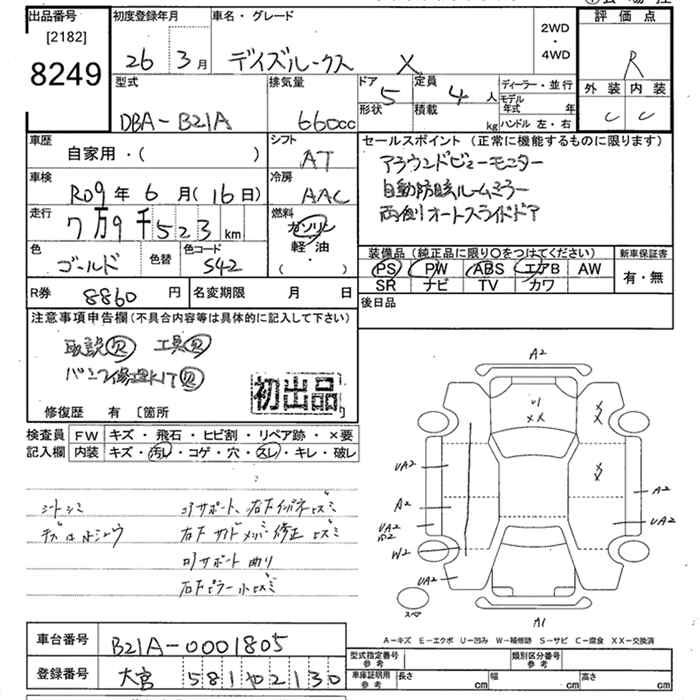 出品番号 初度登録年月 車名・グレード 2WD・4WD 評価点
[2182]
8249
26年 3月 デイズルークス X R
型式 排気量 ドア 5 定員 4人 ディーラー・並行 外装 内装
形状 積載 kg モデル年式 年 ハンドル 左・右 C C
DBA-B21A 660cc
車歴 シフト セールスポイント (正常に機能するものに限ります)
自家用・( ) AT アラウンドビューモニター
車検 冷房 自動防眩ルームミラー
R09年 6月(16日) AAC 両側オートスライドドア
走行 燃料
7万9千523km ガソリン・軽油・( )
色 色替 色コード 装備品 (純正品に限り○をつけてください) 新車保証書
ゴールド S42 PS PW ABS エアB AW 有・無
SR ナビ TV カワ
R券 8860円 名変期限 月 日 後日品
注意事項申告欄 (不具合内容等は具体的に記入して下さい)
取説 欠 工具 欠
パンク修理KIT 欠
初出品
修復歴 有 〔箇所
検査員 FW キズ・飛石・ヒビ割・リペア跡・×要
記入欄 内装 キズ・汚レ・コゲ・穴・スレ・キレ・破レ
シートシミ コアサポート、右下インパネヒズミ
右下サイドメンバー修正ヒズミ
コアサポート曲り
右下ピラー小ヒズミ
A2
UA2
A2
UA2
W2
UA2
A2
UA2
スペア
A1
A−キズ E−エクボ U−凹み W−補修跡 S−サビ C−腐食 XX−交換済
車台番号 B21A-0001805 型式指定番号 参考 類別区分番号 参考
登録番号 大宮 581 め 2130 車庫証明用 参考 長さ cm 幅 cm 高さ cm